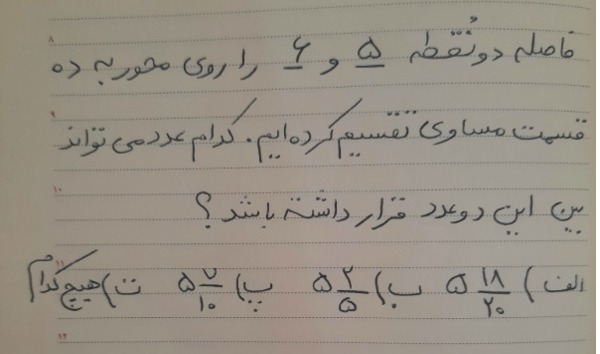 ۸
فاصله دو نُقطه ۵ و ۶ را روی محور به ده
۹
قسمت مساوی تقسیم کرده‌ایم. کدام عدد می تواند
۱۰
بین این دو عدد قرار داشته باشد؟
۱۱
الف) ۵ ۱۸/۲۰ ب) ۵ ۲/۵ پ) ۵ ۷/۱۰ ت) هیچ کدام
۱۲